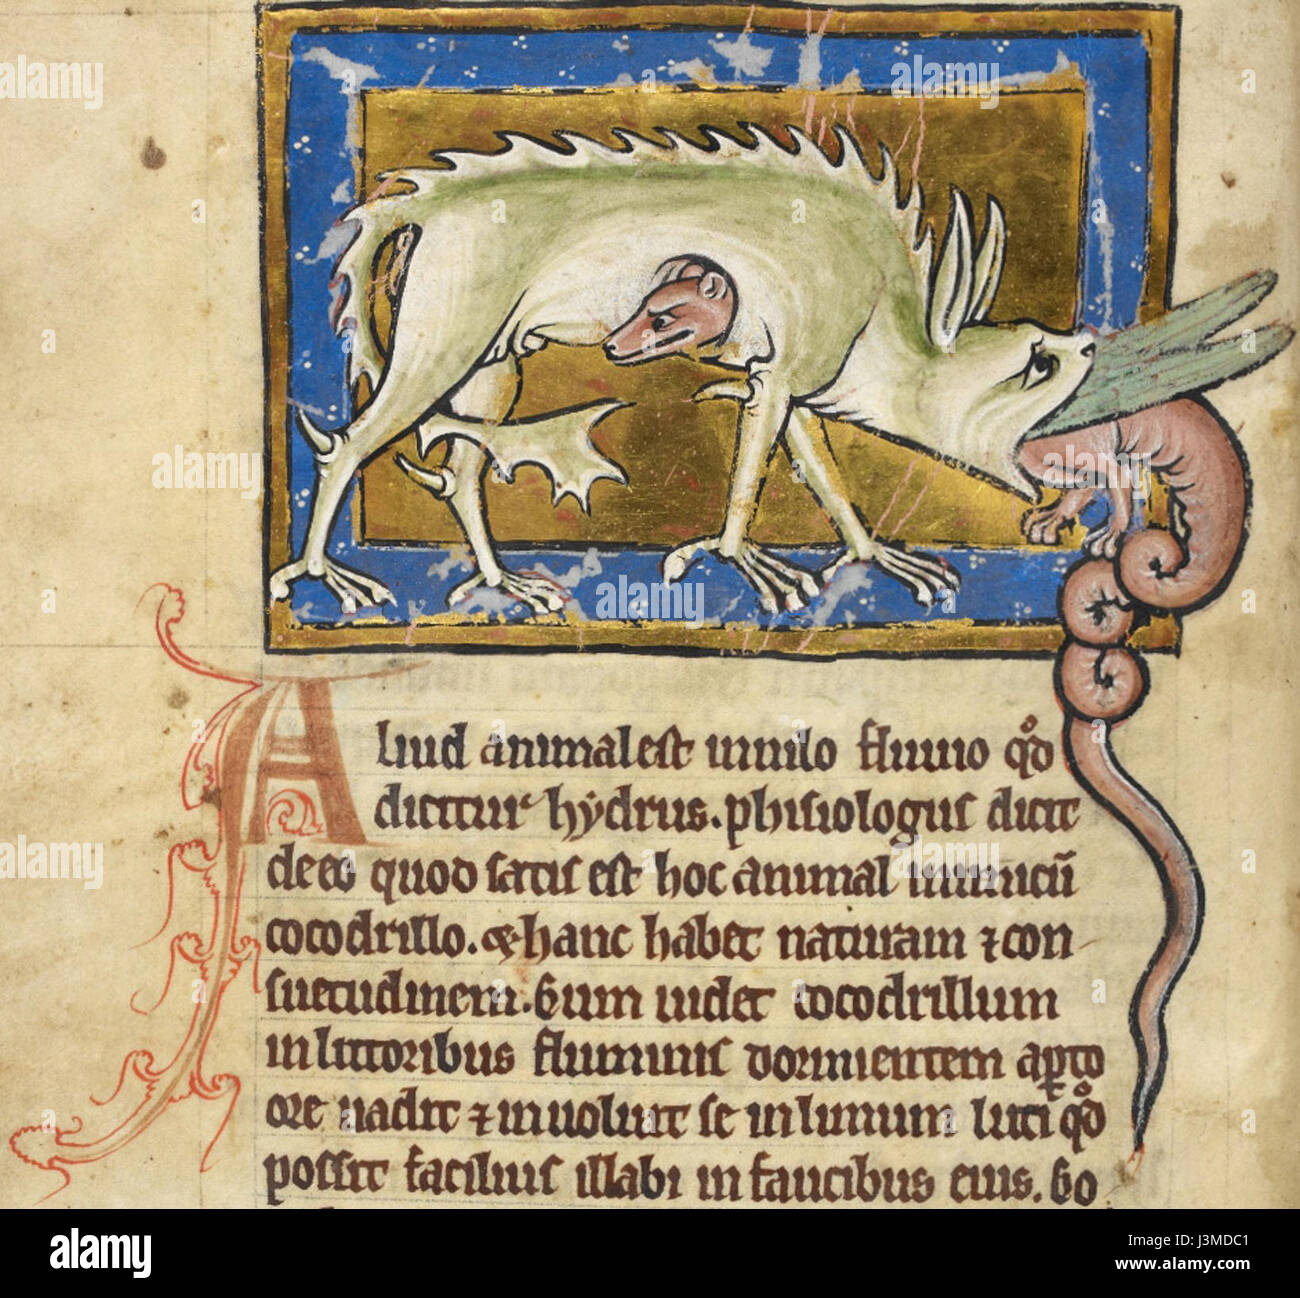 Aliud animal est in nilo fluuio qd
dicitur hydrus. phisiologus dicit
de eo quod satis est hoc animal inimicū
cocodrillo. & hanc habet naturam ⁊ con
suetudinem. Cum uidet cocodrillum
in littoribus fluminis dormientem apto
ore uadit ⁊ inuoluit se in limum luti qd
possit facilius illabi in faucibus eius. Co
alamy stock photo
alamy
Image ID: J3MDC1
www.alamy.com